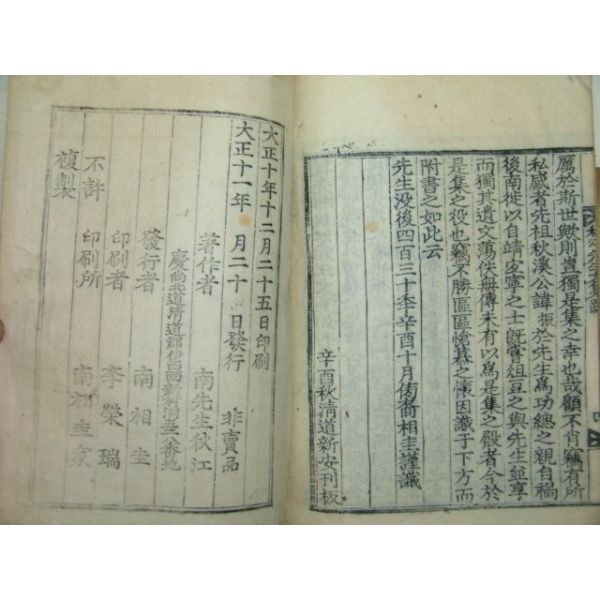 厲於斯世歟則豈獨是集之幸也哉顧不肖竊有所
私感者先祖秋溪公諱振於先生爲功緦之親自禍
後南徙以自靖安寧之士旣嘗俎豆之與先生並享
而獨其遺文蕩佚無傳未有以爲是集之殿者今於
是集之役也竊不勝區區愴慕之懷因識于下方而
附書之如此云
先生没後四百三十年辛酉十月傍裔相圭謹識
辛酉秋清道新安刊板
大正十年十二月二十五日印刷
大正十一年 月二十 日發行 非賣品
著作者 南先生秋江
慶尚北道清道郡
發行者 南相圭
印刷者 李榮瑞
印刷所 南相圭家
不許
複製